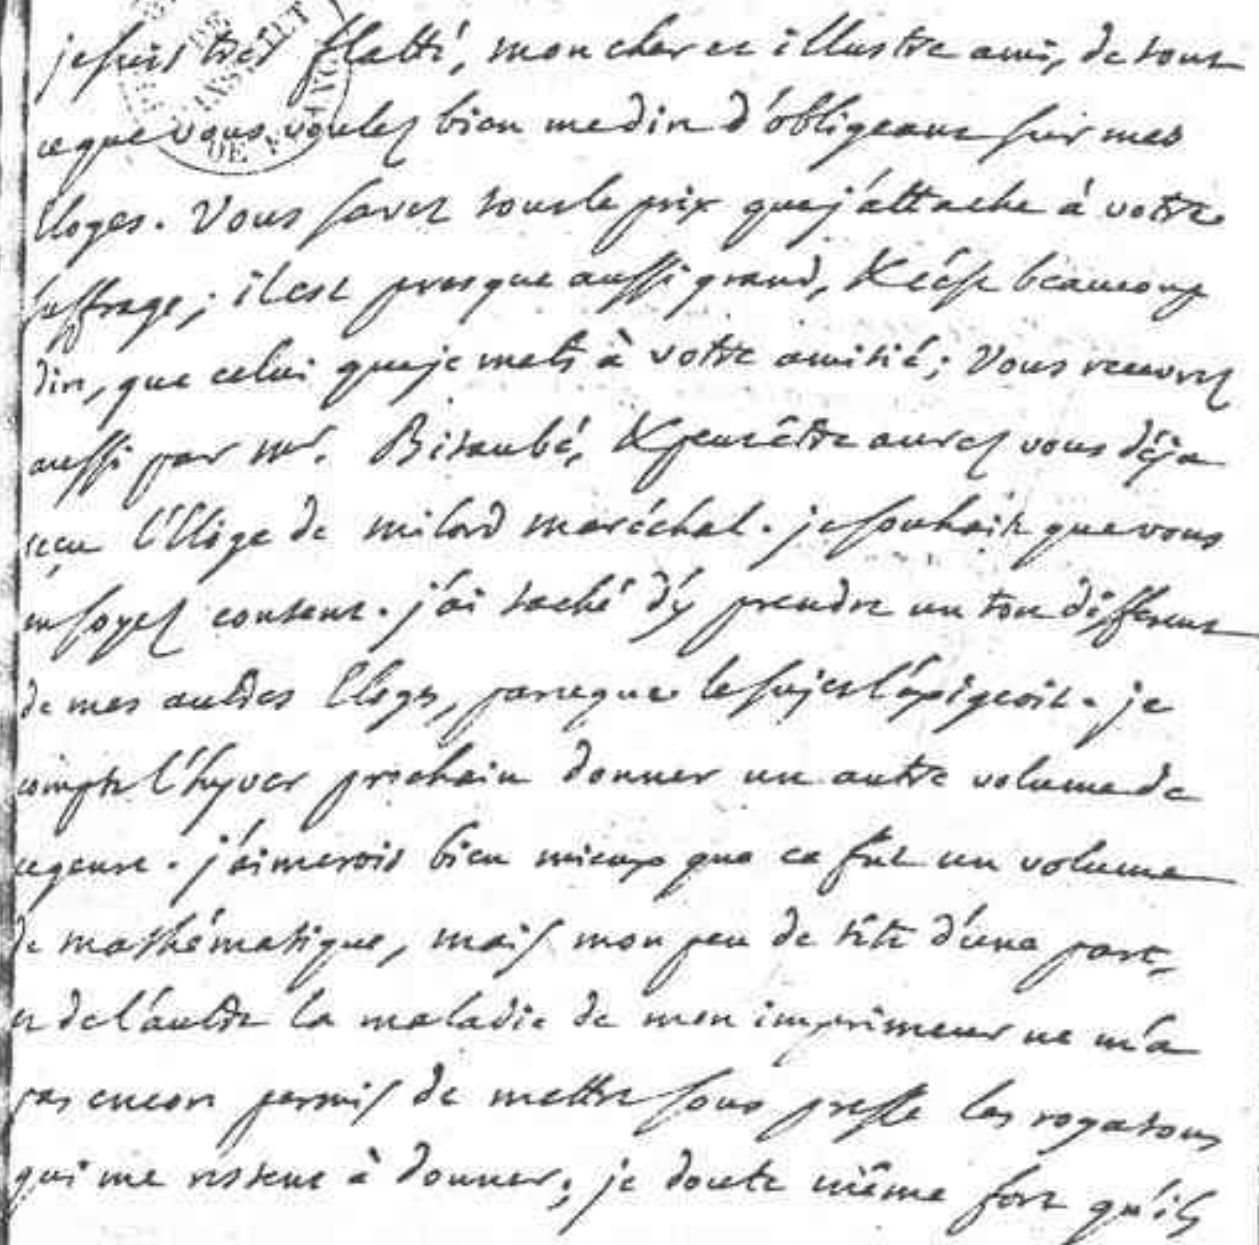 je suis très flatté, mon cher et illustre ami, de tout
ce que vous voulez bien me dire d'obligeant sur mes
Eloges. Vous savez tout le prix que j'attache à votre
suffrage; il est presque aussi grand, & c'est beaucoup
dire, que celui que je mets à votre amitié; Vous recevrez
aussi par Mr. Bitaubé, & peut être aurez vous déja
reçu l'Eloge de milord maréchal. je souhaite que vous
en soyez content. j'ai taché d'y prendre un ton différent
de mes autres Eloges, parceque le sujet l'éxigeoit. je
compte l'hyver prochain donner un autre volume de
ce genre. j'aimerois bien mieux que ce fut un volume
de mathématique, mais mon peu de tête d'une part,
et de l'autre la maladie de mon imprimeur ne m'a
pas encore permis de mettre sous presse les rogatons
qui me restent à donner; je doute même fort qu'ils